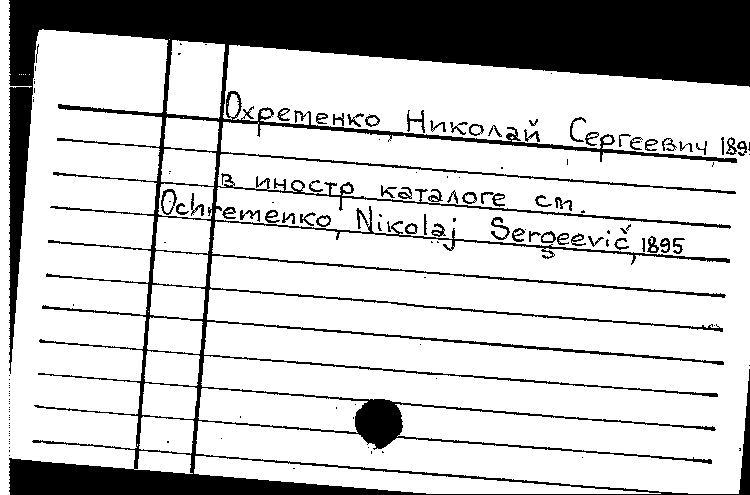 Охретенко Николай Сергеевич 1895
в иностр каталоге см.
Ochremenko, Nikolaj Sergeevič, 1895